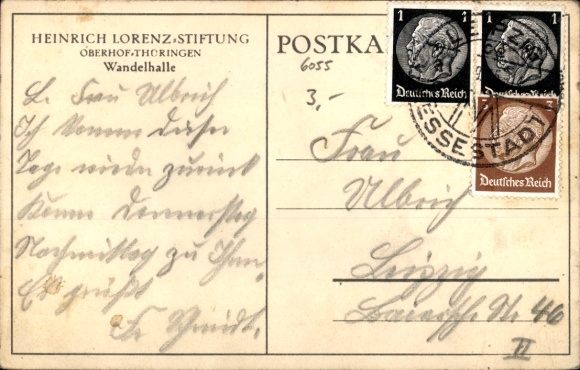 HEINRICH LORENZ-STIFTUNG
OBERHOF-THÜRINGEN
Wandelhalle
L. Frau Ulbrich
Ich komme dieser
Tage wieder zurück
komme Donnerstag
Nachmittag zu Ihnen
Es grüßt
Fr. Schmidt.
POSTKA
6055
3,-
1
Deutsches Reich
1
Deutsches Reich
3
Deutsches Reich
ESSESTADT
Frau
Ulbrich
Leipzig
Str. 46
II